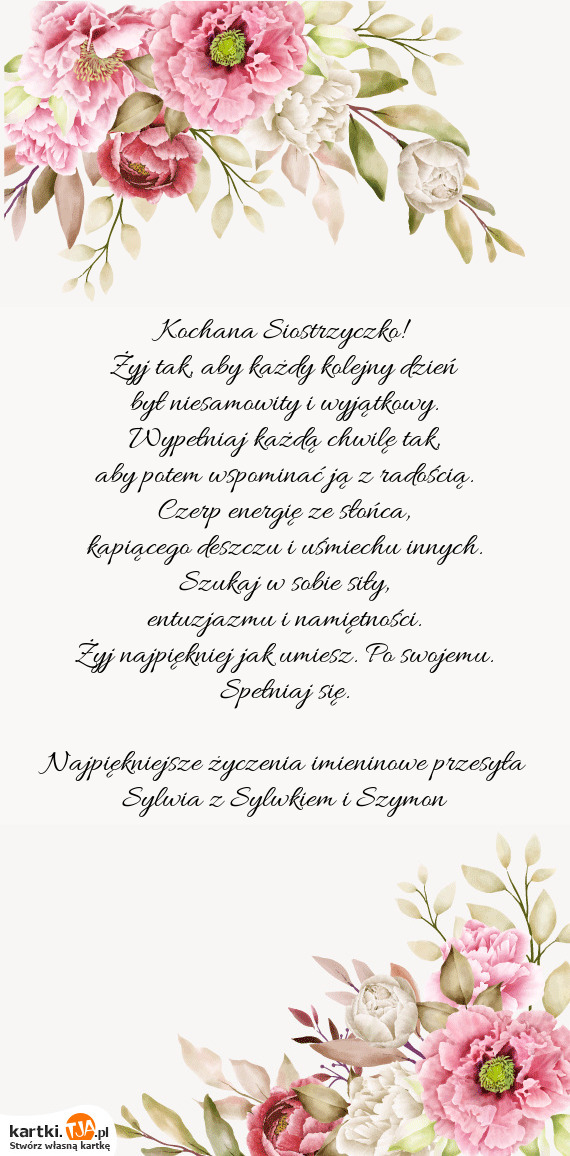 Kochana Siostrzyczko!
Żyj tak, aby każdy kolejny dzień
był niesamowity i wyjątkowy.
Wypełniaj każdą chwilę tak,
aby potem wspominać ją z radością.
Czerp energię ze słońca,
kapiącego deszczu i uśmiechu innych.
Szukaj w sobie siły,
entuzjazmu i namiętności.
Żyj najpiękniej jak umiesz. Po swojemu.
Spełniaj się.
Najpiękniejsze życzenia imieninowe przesyła
Sylwia z Sylwkiem i Szymon
kartki.TJA.pl
Stwórz własną kartkę